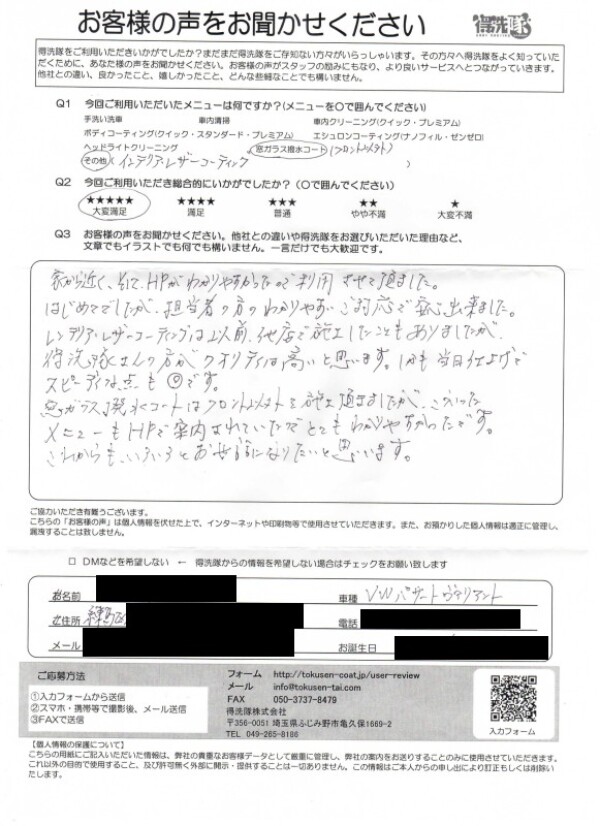 お客様の声をお聞かせください
得洗隊
得洗隊をご利用いただきいかがでしたか?まだまだ得洗隊をご存知ない方々がいらっしゃいます。その方々へ得洗隊をよく知っていた
だくために、あなた様の声をお聞かせください。お客様の声がスタッフの励みにもなり、より良いサービスへとつながっていきます。
他社との違い、良かったこと、嬉しかったこと、どんな些細なことでも構いません。
Q1 今回ご利用いただいたメニューは何ですか?(メニューを〇で囲んでください)
手洗い洗車 車内清掃 車内クリーニング(クイック・プレミアム)
ボディコーティング(クイック・スタンダード・プレミアム) エシュロンコーティング(ナノフィル・ゼンゼロ)
ヘッドライトクリーニング 窓ガラス撥水コート (フロント以外)
その他( インテリア・レザーコーティング )
Q2 今回ご利用いただき総合的にいかがでしたか?(〇で囲んでください)
★★★★★ ★★★★ ★★★ ★★ ★
大変満足 満足 普通 やや不満 大変不満
Q3 お客様の声をお聞かせください。他社との違いや得洗隊をお選びいただいた理由など、
文章でもイラストでも何でも構いません。一言だけでも大歓迎です。
家から近く、そして、HPがわかりやすかったので利用させて頂ました。
はじめてでしたが、担当者の方のわかりやすいご対応で安心出来ました。
レンテリア・レザーコーティングは以前、他店で施工したこともありましたが、
得洗隊さんの方がクオリティは高いと思います。しかも当日仕上げで
スピーディな点も◎です。
窓ガラス撥水コートはフロント以外を施工頂きましたが、こういった
メニューもHPで案内されていたのでとてもわかりやすかったです。
これからも、いろいろとお世話になりたいと思います。
ご協力いただき有難うございます。
こちらの「お客様の声」は個人情報を伏せた上で、インターネットや印刷物等で使用させていただきます。また、お預かりした個人情報は適正に管理し、
漏洩することは致しません。
□ DMなどを希望しない ← 得洗隊からの情報を希望しない場合はチェックをお願い致します
お名前 車種 VWパサートヴァリアント
ご住所 練馬区 電話
メール お誕生日
ご応募方法
①入力フォームから送信
②スマホ・携帯等で撮影後、メール送信
③FAXで送信
フォーム http://tokusen-coat.jp/user-review
メール info@tokusen-tai.com
FAX 050-3737-8479
得洗隊株式会社
〒356-0051 埼玉県ふじみ野市亀久保1669-2
TEL 049-265-8186
入力フォーム
【個人情報の保護について】
こちらの用紙にご記入いただいた情報は、弊社の貴重なお客様データとして厳重に管理し、弊社の案内をお送りすることのみに使用させていただきます。
これ以外の目的で使用すること、及び許可無く外部に開示・提供することは一切ありません。この情報はご本人からの申し出により訂正もしくは削除い
たします。